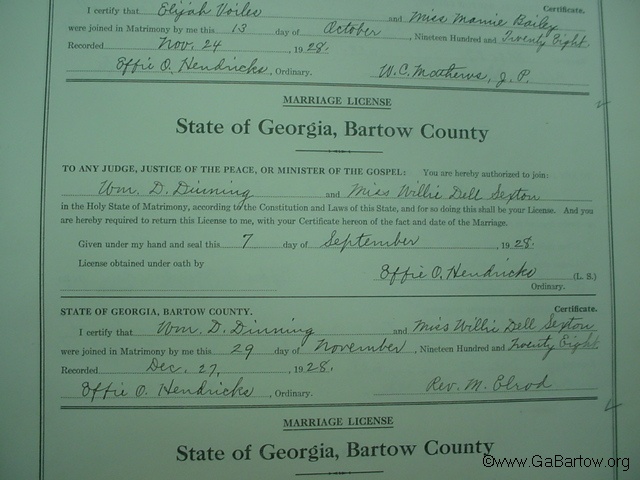 I certify that Elijah Voiles and Miss Mamie Bailey Certificate.
were joined in Matrimony by me this 13 day of October, Nineteen Hundred and Twenty Eight
Recorded Nov. 24, 1928.
Effie O. Hendricks, Ordinary. W. C. Matthews, J. P.
MARRIAGE LICENSE
State of Georgia, Bartow County
TO ANY JUDGE, JUSTICE OF THE PEACE, OR MINISTER OF THE GOSPEL: You are hereby authorized to join:
Wm. D. Dinning and Miss Willie Dell Sexton
in the Holy State of Matrimony, according to the Constitution and Laws of this State, and for so doing this shall be your License. And you
are hereby required to return this License to me, with your Certificate hereon of the fact and date of the Marriage.
Given under my hand and seal this 7 day of September, 1928.
License obtained under oath by Effie O. Hendricks (L. S.)
Ordinary.
STATE OF GEORGIA, BARTOW COUNTY. Certificate.
I certify that Wm. D. Dinning and Miss Willie Dell Sexton
were joined in Matrimony by me this 29 day of November, Nineteen Hundred and Twenty Eight
Recorded Dec. 27, 1928.
Effie O. Hendricks, Ordinary. Rev. M. Elrod
MARRIAGE LICENSE
State of Georgia, Bartow County
©www.GaBartow.org